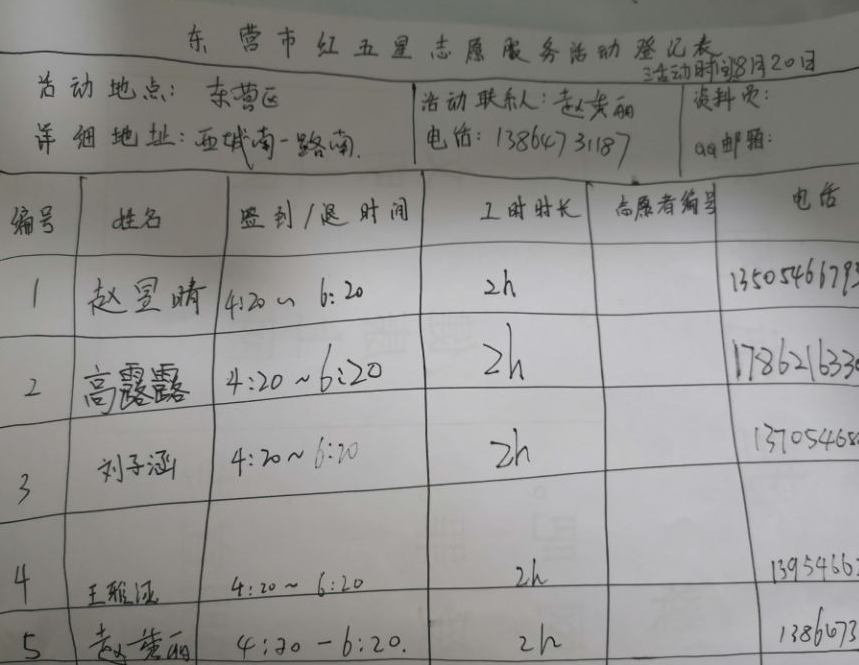 东营市红五星志愿服务活动登记表
活动时间8月20日
活动地点：东营区 活动联系人：赵 丽 资料页：
详细地址：西城南一路南. 电话：13864731187 qq邮箱：
编号 姓名 签到/退时间 工时时长 志愿者编号 电话
1 赵昱晴 4:20~ 6:20 2h 1350546679
2 高露露 4:20~6:20 2h 178621633
3 刘子涵 4:20~ 6:20 2h 13705468
4 王雅涵 4:20~ 6:20 2h 1395466
5 赵 丽 4:20-6:20. 2h